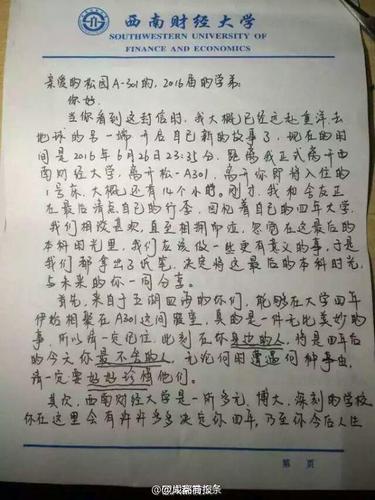 西南财经大学
SOUTHWESTERN UNIVERSITY OF
FINANCE AND ECONOMICS
亲爱的松园A-301的,2016届的学弟:
你好.
当你看到这封信时,我大概已经远赴重洋,去
地球的另一端开启自己新的故事了,现在的时
间是2016年6月26日23:35分,距离我正式离开西
南财经大学,离开松-A301,离开你即将入住的
1号床,大概还有14个小时.刚才,我和舍友正
在最后清点自己的行李,回忆着自己的四年大学,
我们相谈甚欢,直至相拥而泣,忽觉在这最后的
本科时光里,我们应该做一些更有意义的事,于是
我们都拿出了纸笔,决定将这最后的本科时光
与未来的你一同分享.
首先,来自于五湖四海的你们,能够在大学四年
伊始相聚在A301这间寝室,真的是一件无比美妙的
事,所以请一定记住,此刻在你身边的人,将是四年后
的今天你最不舍的人,无论何时遭遇何种事由,
请一定要好好珍惜他们.
其次,西南财经大学是一所多元,博大,深刻的学校
你在这里会有许许多多决定你四年,乃至你今后人生
第 页
@成都商报条